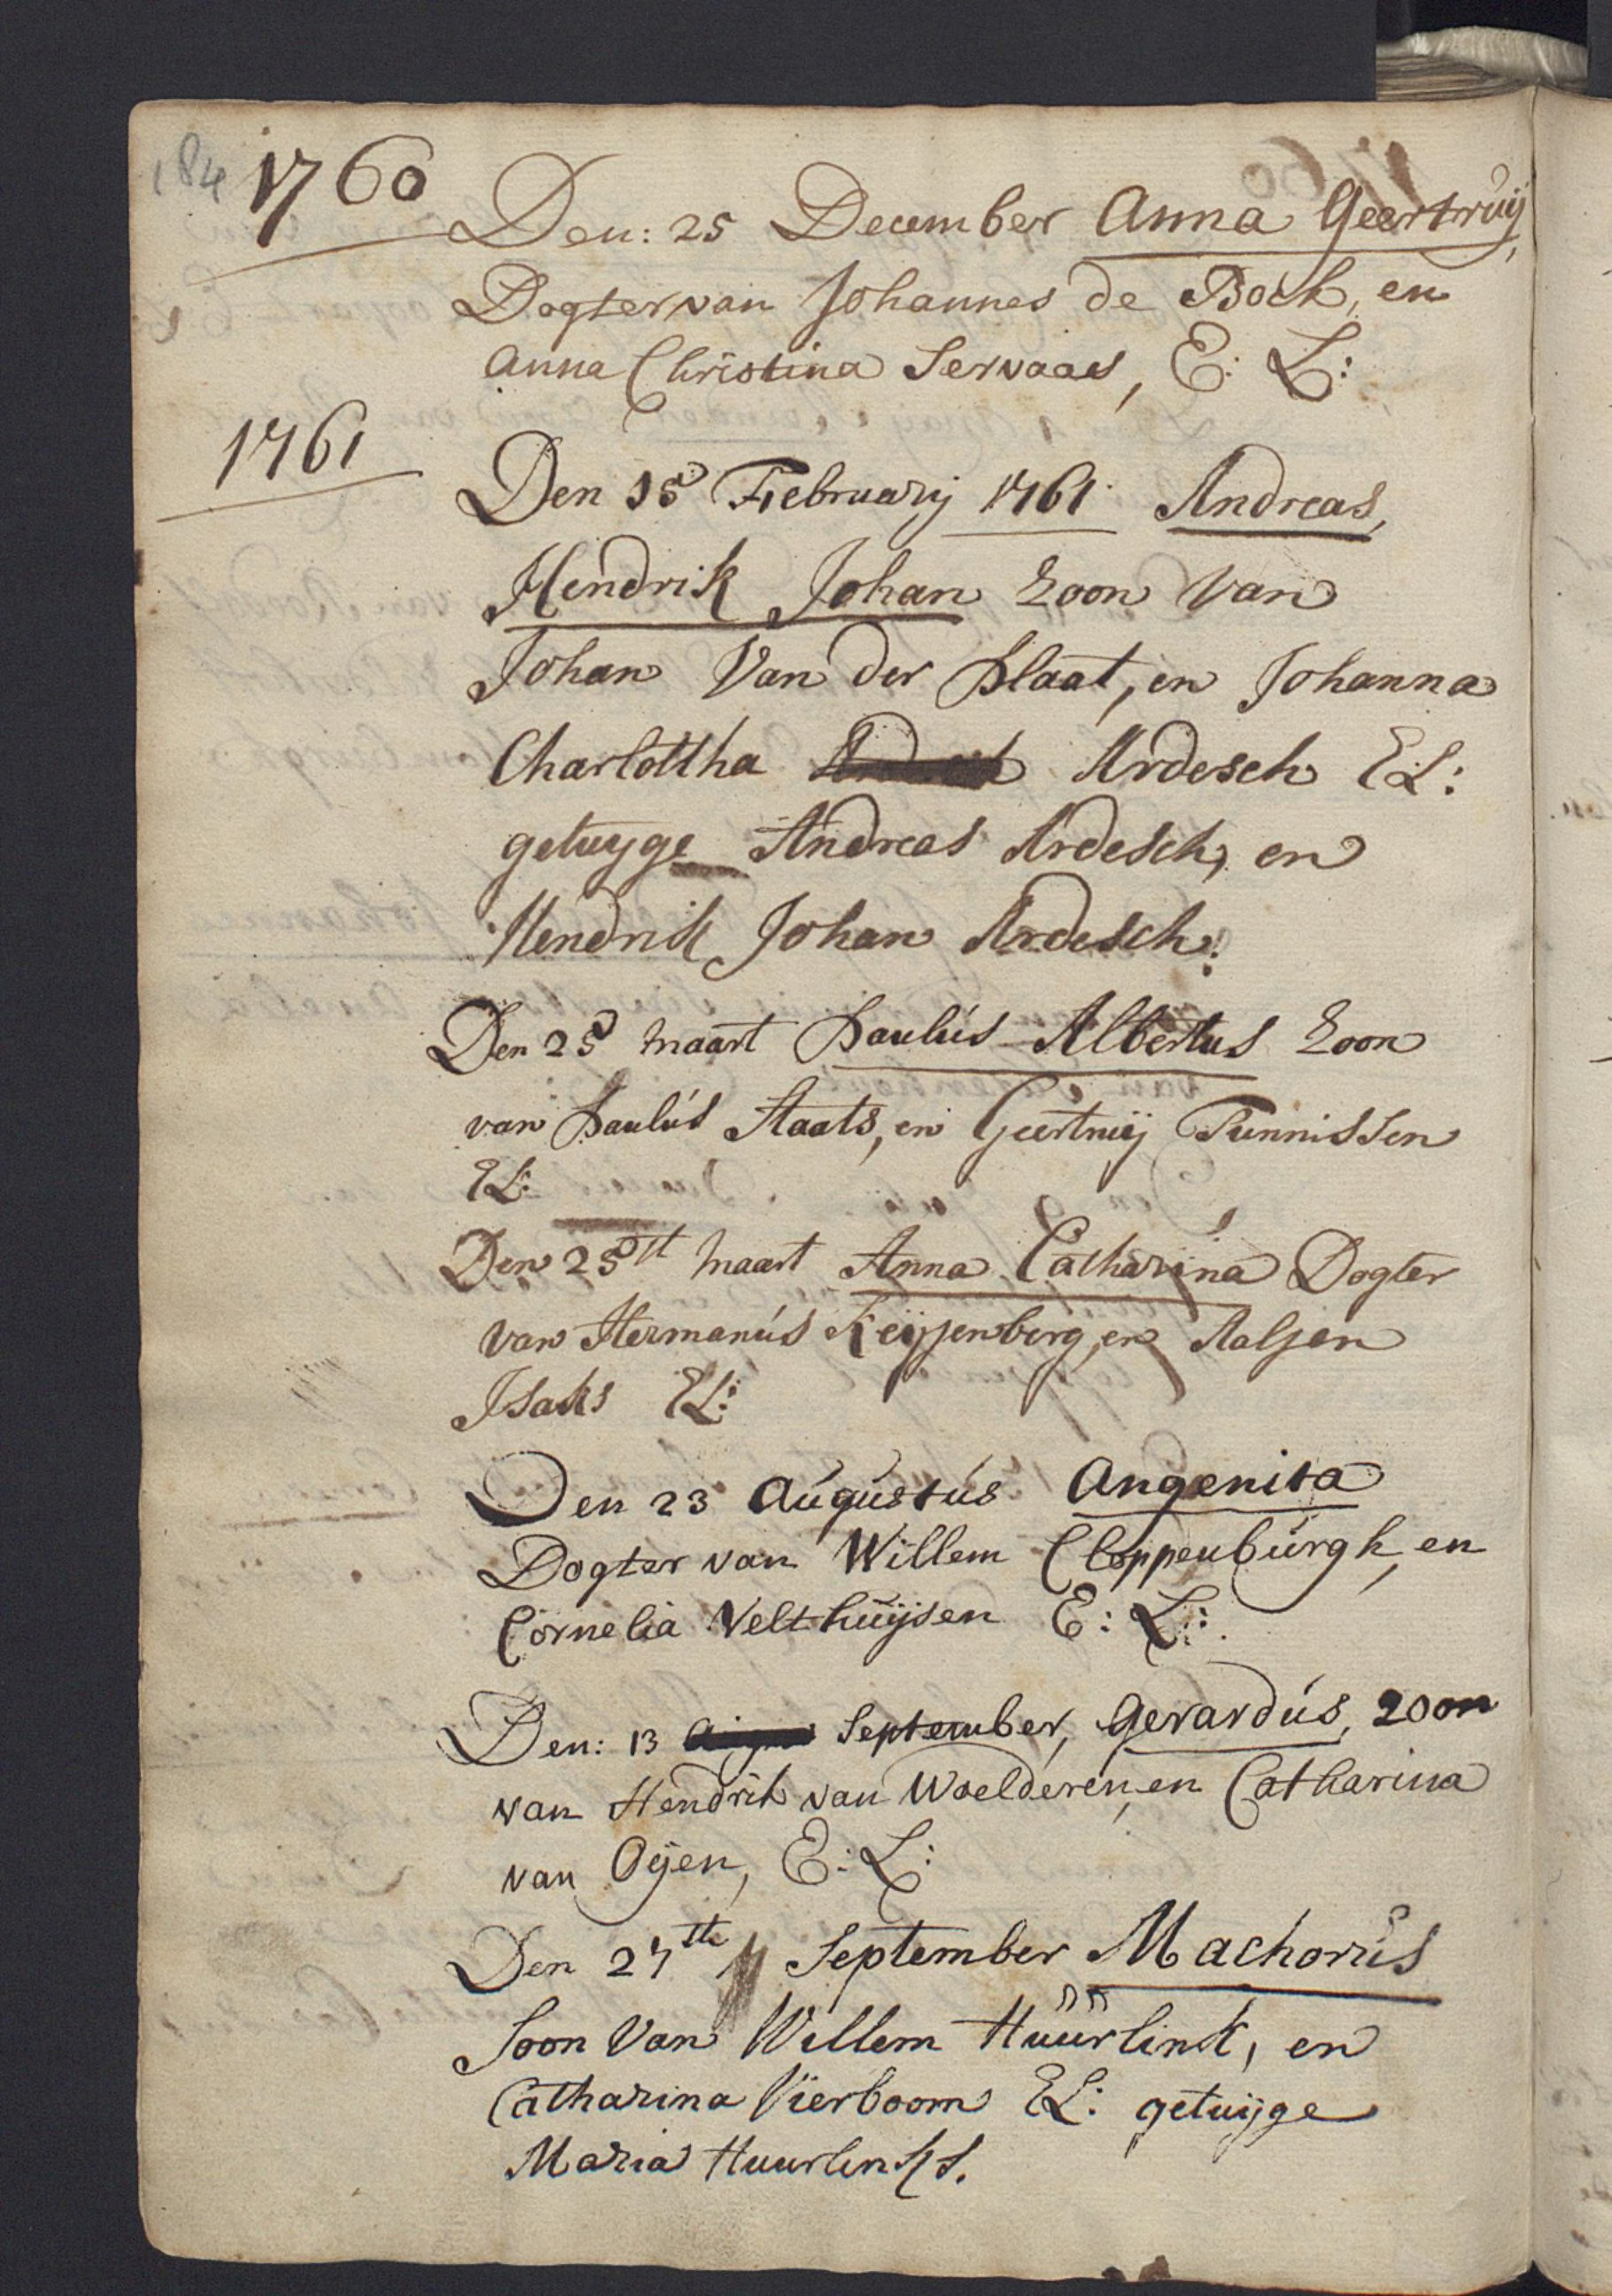 184 1760
Den: 25 December Anna Geertruij,
Dogter van Johannes de Bock, en
Anna Christina Servaas, E: L:
1761
Den 15 February 1761 Andreas,
Hendrik Johan Zoon van
Johan Van der Plaat, en Johanna
Charlottha Ardesch EL:
getuyge Andreas Ardesch, en
Hendrik Johan Ardesch:
Den 25 maart Paulús Albertus Zoon
van Paulús Staats, en Geertruij Tunnissen
EL:
Den 25st maart Anna Catharina Dogter
van Hermanús Keijsenberg, en Aalsen
Isaks EL:
Den 23 Augústús Angenita
Dogter van Willem Cloppenbúrgh, en
Cornelia Velthuijsen E: L:
Den: 13 September, Gerardús, zoon
van Hendrik van Woelderen, en Catharina
van Oijen, E: L:
Den 27tte September Machorús
Soon Van Willem Húúrlink, en
Catharina Vierboom EL: getuijge
Maria Huurlinks.